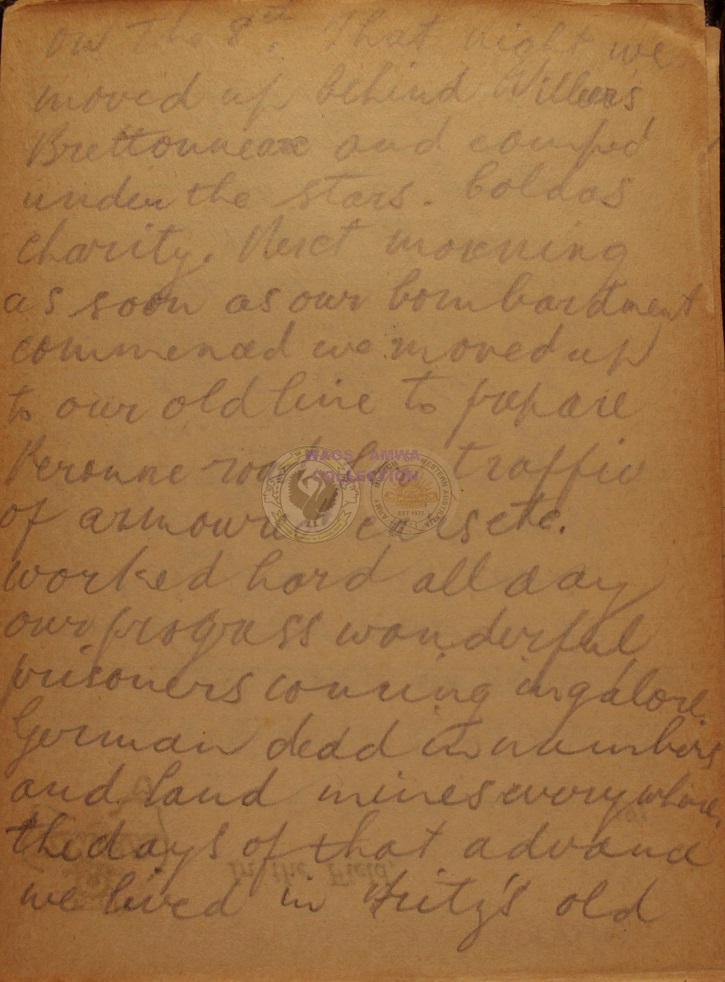 on The 8th. That night we
moved up behind Villers
Brettonneaux and camped
under the stars. Cold as
charity. Next morning
as soon as our bombardment
commenced we moved up
to our old line to prepare
Peronne road for traffic
WACS AMWA
COLLECTION
of armoured cars etc.
worked hard all day
our progress wonderful
prisoners coming in galore.
German dead in numbers
and land mines everywhere.
the days of that advance
we lived in Fritz's old
In the Field